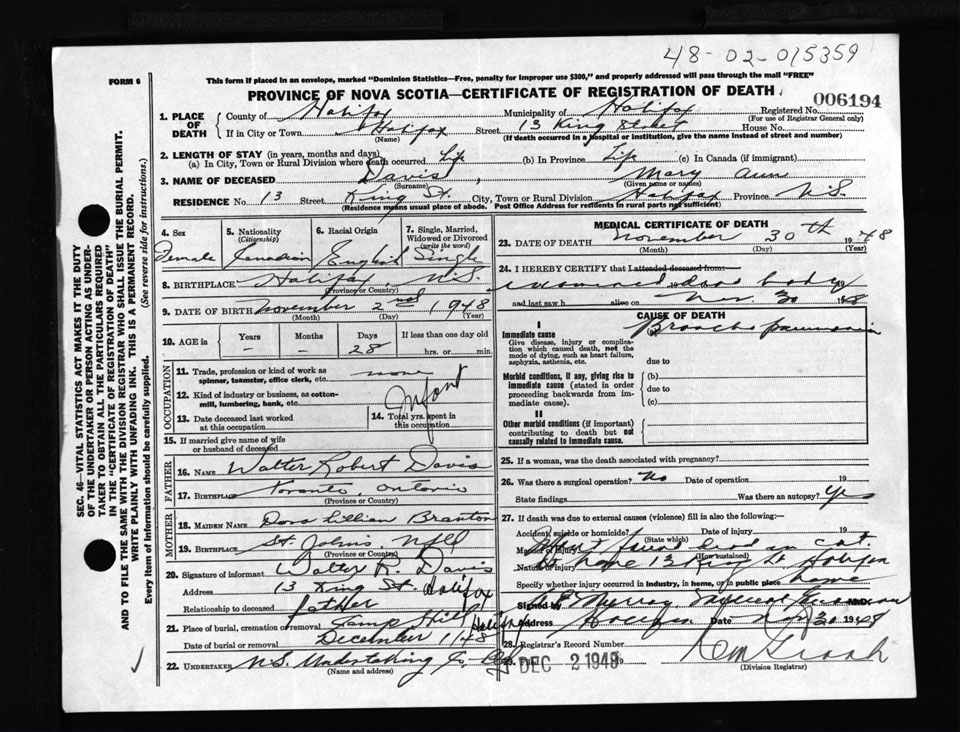 48-02-015359
FORM 6
This form if placed in an envelope, marked "Dominion Statistics—Free, penalty for improper use $300," and properly addressed will pass through the mail "FREE"
PROVINCE OF NOVA SCOTIA—CERTIFICATE OF REGISTRATION OF DEATH
Registered No. 006194
(For use of Registrar General only)
1. PLACE OF DEATH
County of Halifax Municipality of Halifax
If in City or Town Halifax Street 13 King Street House No.
(Name) (If death occurred in a hospital or institution, give the name instead of street and number)
2. LENGTH OF STAY (in years, months and days)
(a) In City, Town or Rural Division where death occurred Life (b) In Province Life (c) In Canada (if immigrant)
3. NAME OF DECEASED Davis, Mary Ann
(Surname) (Given name or names)
RESIDENCE No. 13 Street King St. City, Town or Rural Division Halifax Province N.S.
(Residence means usual place of abode. Post Office Address for residents in rural parts not sufficient)
4. Sex Female
5. Nationality (Citizenship) Canadian
6. Racial Origin English
7. Single, Married, Widowed or Divorced (write the word) Single
8. BIRTHPLACE Halifax, N.S.
(Province or Country)
9. DATE OF BIRTH November 2nd 1948
(Month) (Day) (Year)
10. AGE in Years Months Days If less than one day old
- 28 hrs. or min.
OCCUPATION
11. Trade, profession or kind of work as spinner, teamster, office clerk, etc. none
12. Kind of industry or business, as cotton-mill, lumbering, bank, etc.
Infant
13. Date deceased last worked at this occupation
14. Total yrs. spent in this occupation
15. If married give name of wife or husband of deceased
FATHER
16. NAME Walter Robert Davis
17. BIRTHPLACE Toronto, Ontario
(Province or Country)
MOTHER
18. MAIDEN NAME Dora Lillian Branton
19. BIRTHPLACE St. John's, Nfld
(Province or Country)
20. Signature of informant Walter R. Davis
Address 13 King St. Halifax
Relationship to deceased father
21. Place of burial, cremation or removal Camp Hill Halifax
Date of burial or removal December 1/48
22. UNDERTAKER N.S. Undertaking Co.
(Name and address)
MEDICAL CERTIFICATE OF DEATH
23. DATE OF DEATH November 30th 1948
(Month) (Day) (Year)
24. I HEREBY CERTIFY that I attended deceased from:
examined dead body 19
and last saw h alive on Nov 30 1948
CAUSE OF DEATH
I
Immediate cause
Give disease, injury or complication which caused death, not the mode of dying, such as heart failure, asphyxia, asthenia, etc.
(a) Broncho pneumonia
due to
Morbid conditions, if any, giving rise to immediate cause (stated in order proceeding backwards from immediate cause).
(b)
due to
(c)
II
Other morbid conditions (if important) contributing to death but not causally related to immediate cause.
25. If a woman, was the death associated with pregnancy?
26. Was there a surgical operation? No Date of operation 19
State findings Was there an autopsy? Yes
27. If death was due to external causes (violence) fill in also the following:
Accident, suicide or homicide? Date of injury 19
(State which)
Manner of injury Infant found dead in cot
(How sustained)
Nature of injury at home 13 King St Halifax
Specify whether injury occurred in industry, in home, or in public place home
Signed by Murray, Medical Examiner M.D.
Address Halifax Date Nov 30 1948
28. Registrar's Record Number
29. Filed DEC 2 1948 19
(Division Registrar)
SEC. 46—VITAL STATISTICS ACT MAKES IT THE DUTY OF THE UNDERTAKER OR PERSON ACTING AS UNDERTAKER TO OBTAIN ALL THE PARTICULARS REQUIRED IN THE "CERTIFICATE OF REGISTRATION OF DEATH" AND TO FILE THE SAME WITH THE DIVISION REGISTRAR WHO SHALL ISSUE THE BURIAL PERMIT.
WRITE PLAINLY WITH UNFADING INK. THIS IS A PERMANENT RECORD.
Every item of Information should be carefully supplied. (See reverse side for instructions.)